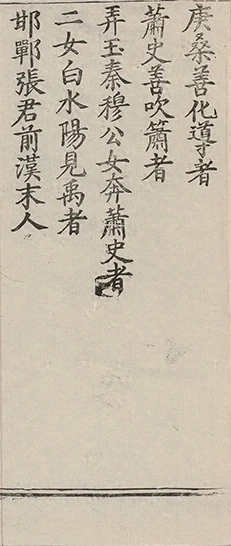 庚桑善化導者
蕭史善吹簫者
弄玉秦穆公女奔蕭史者
二女白水陽見禹者
邯鄲張君前漢末人